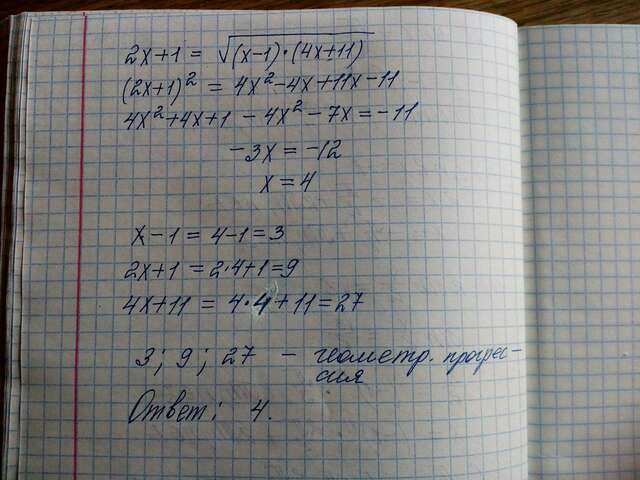 2x+1 = √(x-1)·(4x+11)
(2x+1)² = 4x²-4x+11x-11
4x²+4x+1 - 4x² - 7x = -11
-3x = -12
x = 4
x - 1 = 4-1 = 3
2x+1 = 2·4+1=9
4x+11 = 4·4+11=27
3; 9; 27 - геометр. прогрес-
сия
Ответ: 4.